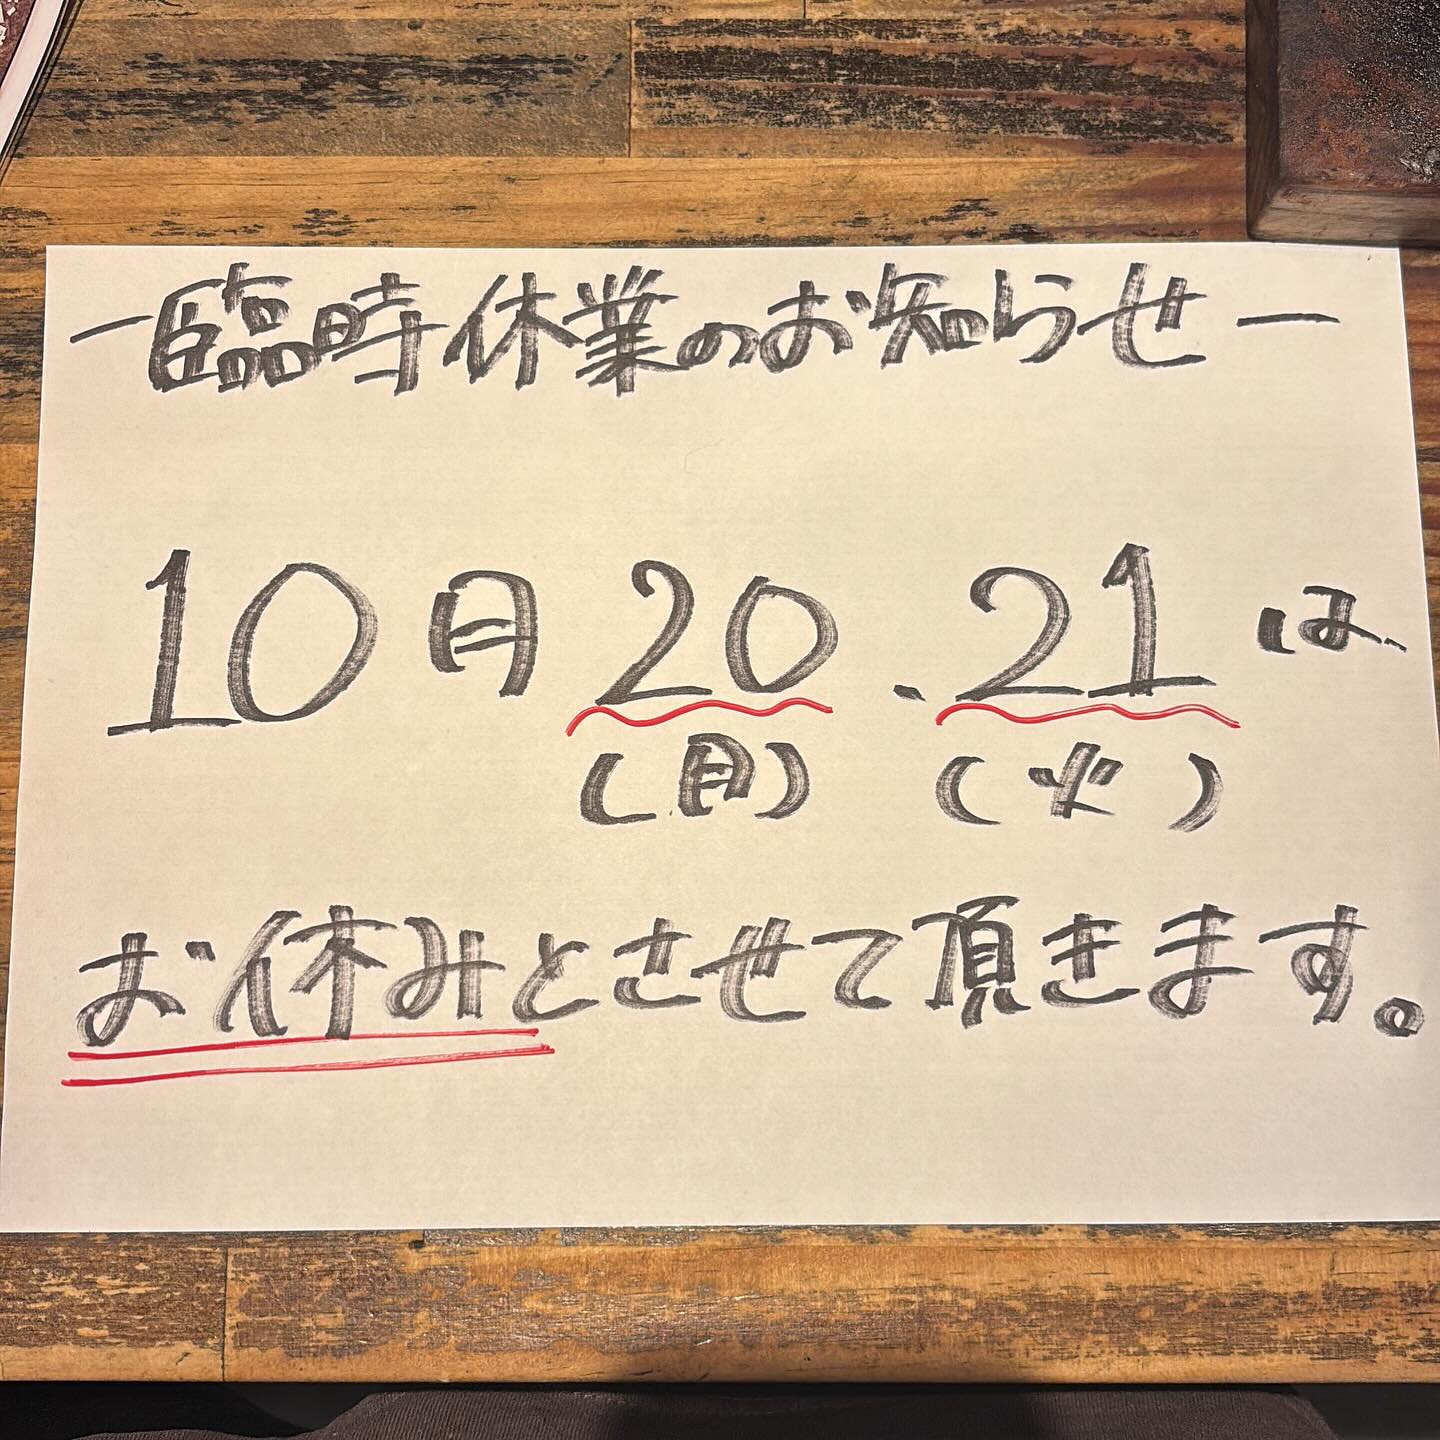 ー臨時休業のお知らせー
10月20.21は、
(月) (火)
お休みとさせて頂きます。